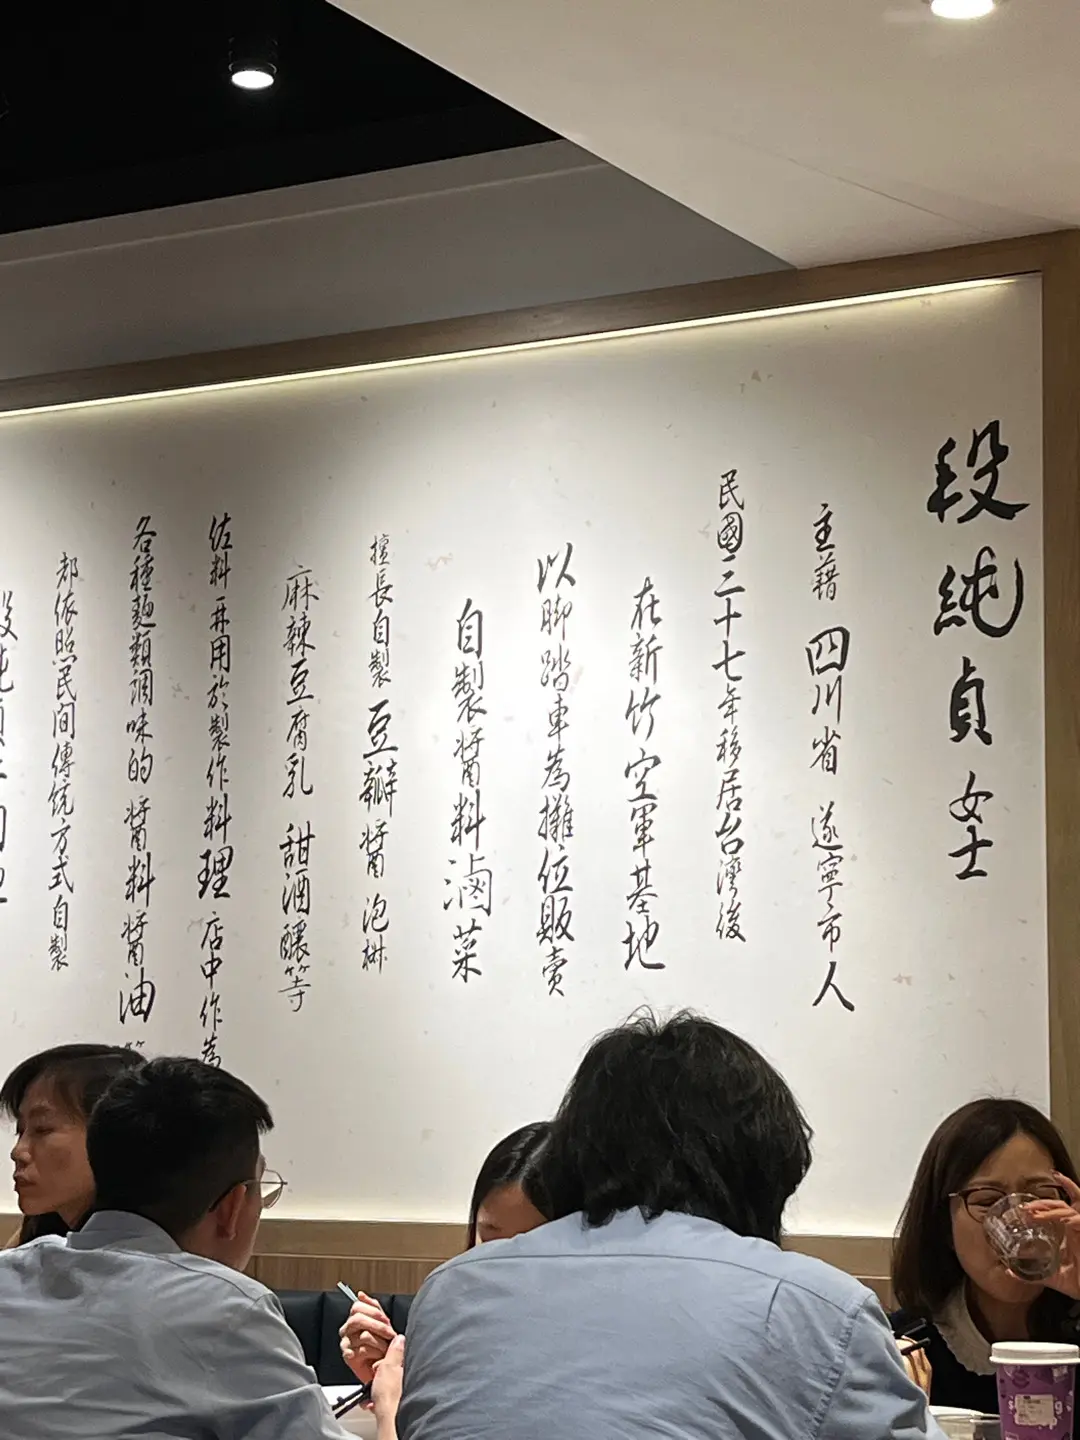 段純貞女士
主藉 四川省 遂寧市人
民國三十七年移居台灣後
在新竹空軍基地
以脚踏車為攤位販賣
自製醬料滷菜
擅長自製 豆瓣醬 泡椒
麻辣豆腐乳 甜酒釀等
佐料 再用於製作料理 店中作為
各種麵類調味的 醬料醬油
都依照民間傳統方式自製